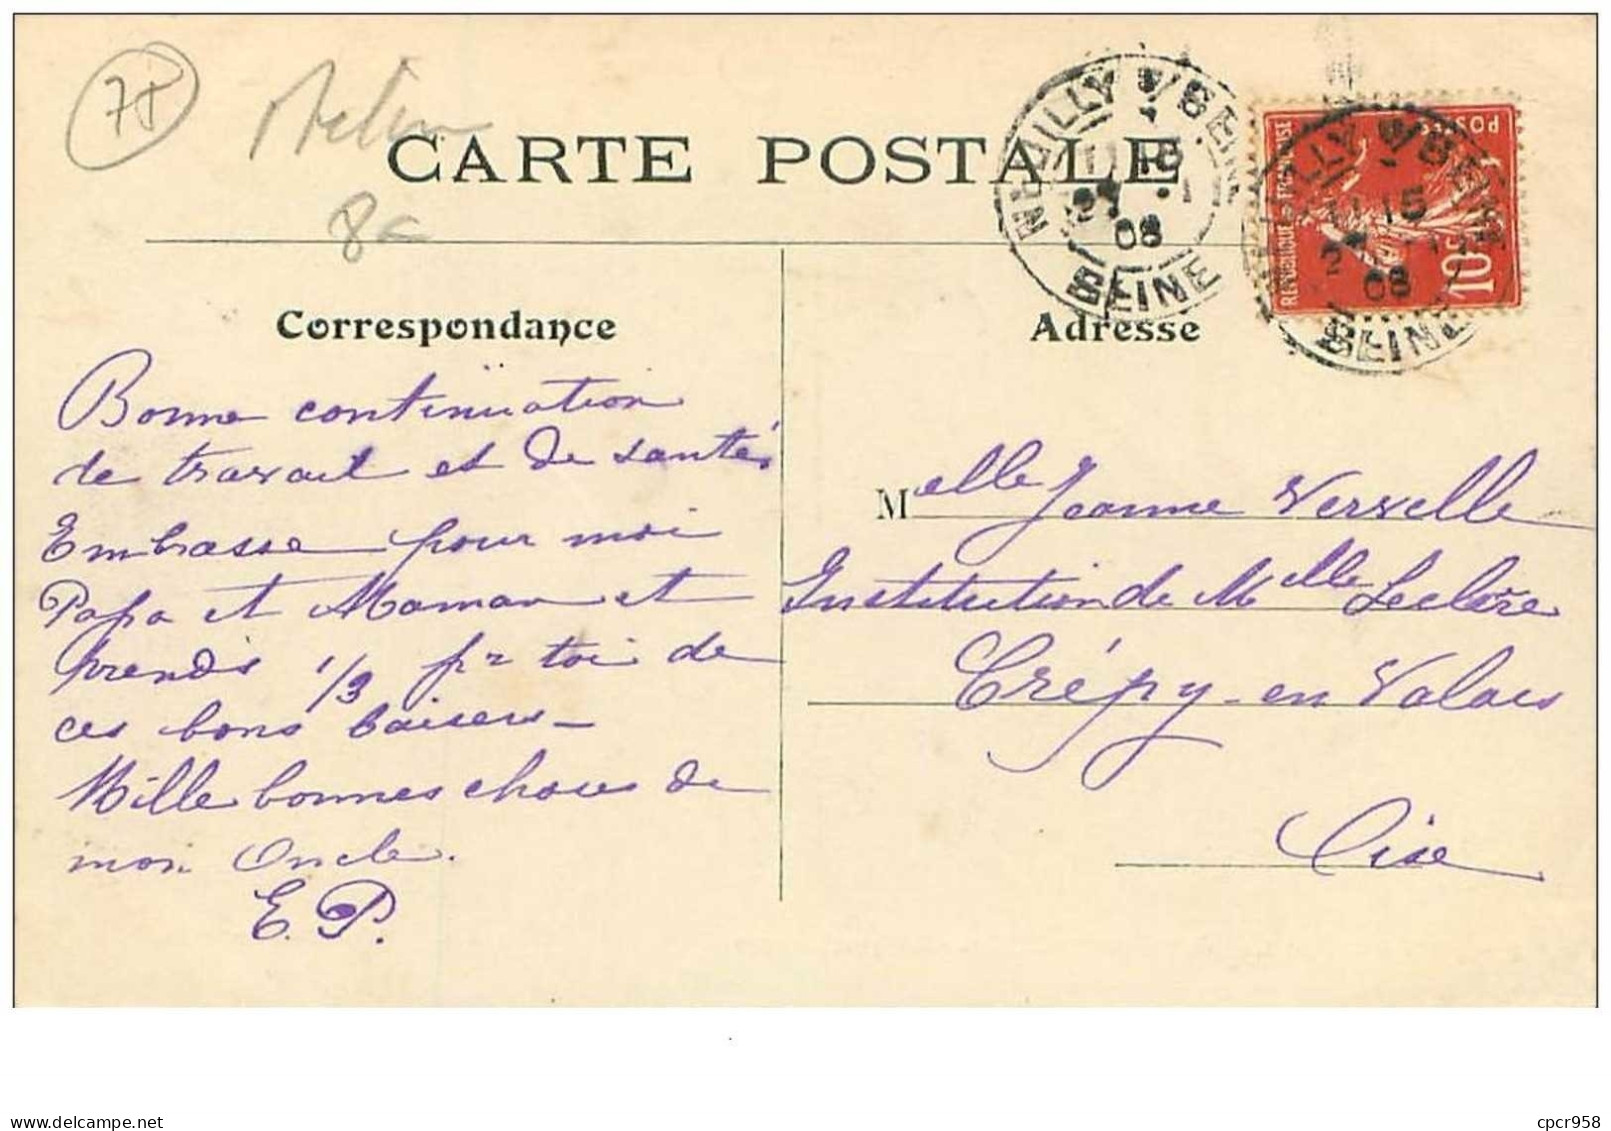 75
8c
CARTE POSTALE
NEUILLY S/SEINE
08
SEINE
POSTES
REPUBLIQUE FRANÇAISE
10c
15
08
SEINE
Correspondance
Adresse
Bonne continuation
de travail et de santé.
Embrasse pour moi
Papa et Maman et
prends 1/3 pr toi de
ces bons baisers –
Mille bonnes choses de
mon Oncle.
E. P.
Melle Jeanne Verselle
Institution de Melle Leclère
Crépy-en Valois
Oise
delcampe.net
cpcr958